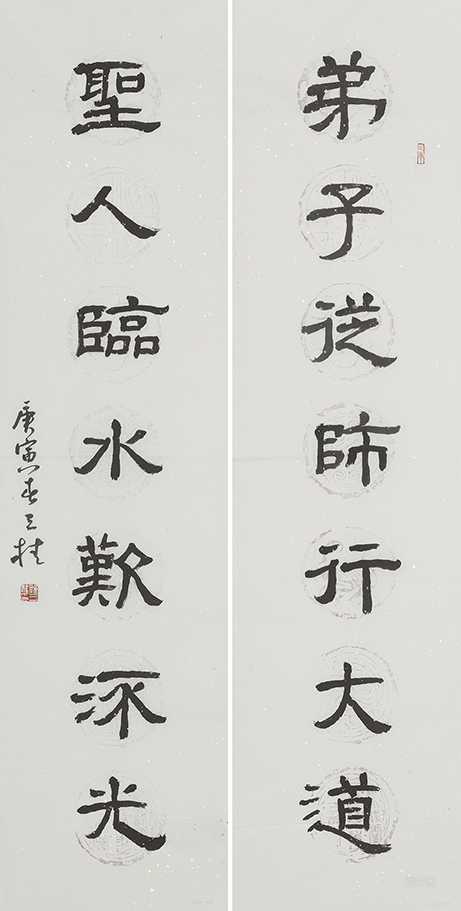 弟子從師行大道
聖人臨水歎流光
庚寅春